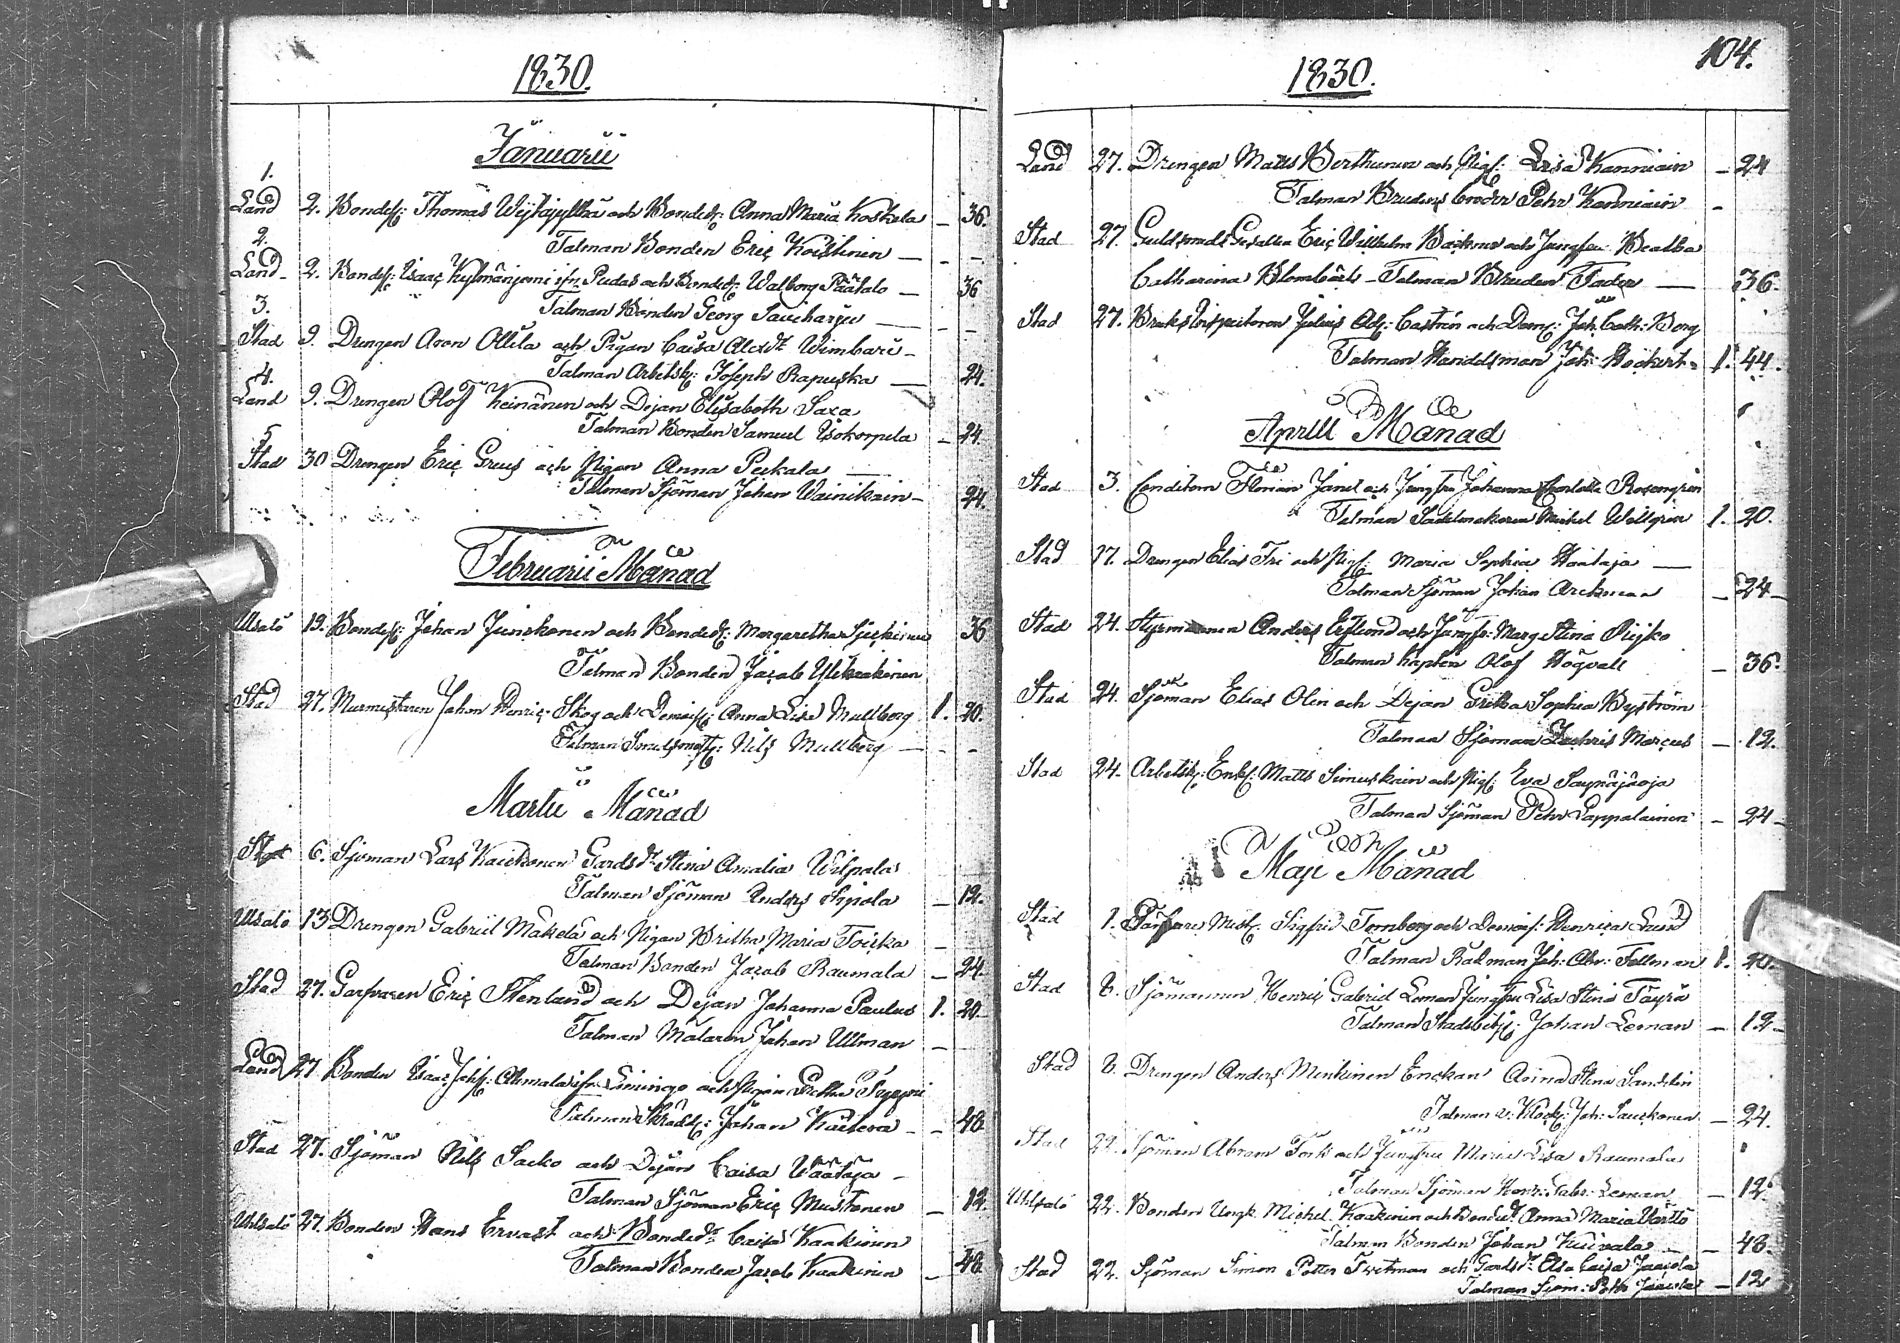 1830.
Januarii
1.
Land 2. Bondes: Thomas och Bonded: Anna Maria Koskela — 36.
2. Talman Bonden Eric Koistinen — - -
Land 2. Bondes: Isaac ifr. Pudas och Bonded: Walborg Päätalo — 36
3. Talman Bonden Georg Sauckarju — - -
Stad 9. Drengen Aron Ollila och Pigan Caisa Wimbari -
4. Talman Arbetsk: Joseph Rapuska — 24.
Land 9. Drengen Olof Keinänen och Dejan Elisabeth Saxa
5 Talman Bonden Samuel Isokorpela - 24.
Stad 30 Drengen Eric Greus och Pigan Anna Peckala —
Talman Sjöman Johan Wainikain - 24.
Februarii Månad
Uhlsalo 19. Bondes: Johan Junckonen och Bonded: Margaretha 36
Talman Bonden Jacob
Stad 27. Murmästaren Johan Henric Skog och Demois: Anna Lisa Mullberg 1. 20.
Talman Nils Mullberg — - -
Martii Månad
Stad 6. Sjöman Lars Kauckonen Gardsdr Stina Amalia Wilpala
Talman Sjöman Anders Sipola — 12.
Uhlsalo 13 Drengen Gabriel Mäkelä och Pigan Britha Maria Toicka -
Talman Bonden Jacob Raumala — 24.
Stad 27. Garfvaren Eric Stenland och Dejan Johanna Paulus 1. 20.
Talman Målaren Johan Ullman -
Land 27 Bonden Isaac ifr. Limingo och Pigan Greta
Talman Skrädd: Johan - 48.
Stad 27. Sjöman Nils Sacko och Dejan Caisa Väätäja -
Talman Sjöman Eric Mustonen — 12.
Uhlsalo 27. Bonden Hans Ervast och Bondedr Caisa Kaakinen
Talman Bonden Jacob Kaakinen - 48.
1830. 104.
Land 27. Drengen Matts Berthunen och Pig: Lisa Kanniain - 24
Talman Brudens broder Pehr Kanniain -
Stad 27 Guldsmeds Gesällen Eric Willhelm Backman och Jungfru Beatha
Catharina - Talman Bruden Fader — 36.
Stad 27. Bruks Inspectoren Julius Ad: Castrén och Dem: Joh: Cath: Borg
Talman Handelsman Joh: Höckert - 1. 44.
Aprill Månad
Stad 3. Conditorn Florian och Jungfru Johanna Charlotta Rosengren
Talman Sadelmakaren Michel Wallgren 1. 20.
Stad 17. Drengen Elias Fri och Pig: Maria Sophia Haataja —
Talman Sjöman Johan Arckman - 24 -
Stad 24. Styrmannen Anders och Jungfr: Marg Stina Pujko
Talman Kapten Olof Högvall - 36.
Stad 24. Sjöman Elias Olin och Dejan Greta Sophia Byström
Talman Sjöman Zachris Marcus — 12.
Stad 24. Arbetsk: Enk: Matts Simuskain och Pig: Eva Saynäjäoja
Talman Sjöman Pehr Lappalainen - 24 -
Maji Månad
Stad 1. Garfvare Mäst: Sigfrid Tornberg och Demois: Henrica Lund
Talman Rådman Joh: Abr: Fellman 1. 20.
Stad 8. Sjömannen Henric Gabriel Leman Jungfru Lisa Stina Täyrä
Talman Johan Leman — 12 -
Stad 8. Drengen Anders Minkinen Enckan Anna Stina Sandelin
Talman v: Klock: Joh: Sauckonen - 24.
Stad 22. Sjöman Abram Tork och Jungfru Maria Lisa Raumala
Talman Sjöman Henr: Gabr: Leman. - 12.
Uhlsalo 22. Bonden Ungk. Michel Kaakinen och Bondedr Anna Maria Värttö
Talman Bonden Johan Kuivala — - 48.
Stad 22. Sjöman Simon Petter Tvetman och Gardsdr Elsa Caisa Jaacola
Talman Sjöm: Petter Jaacola - 12